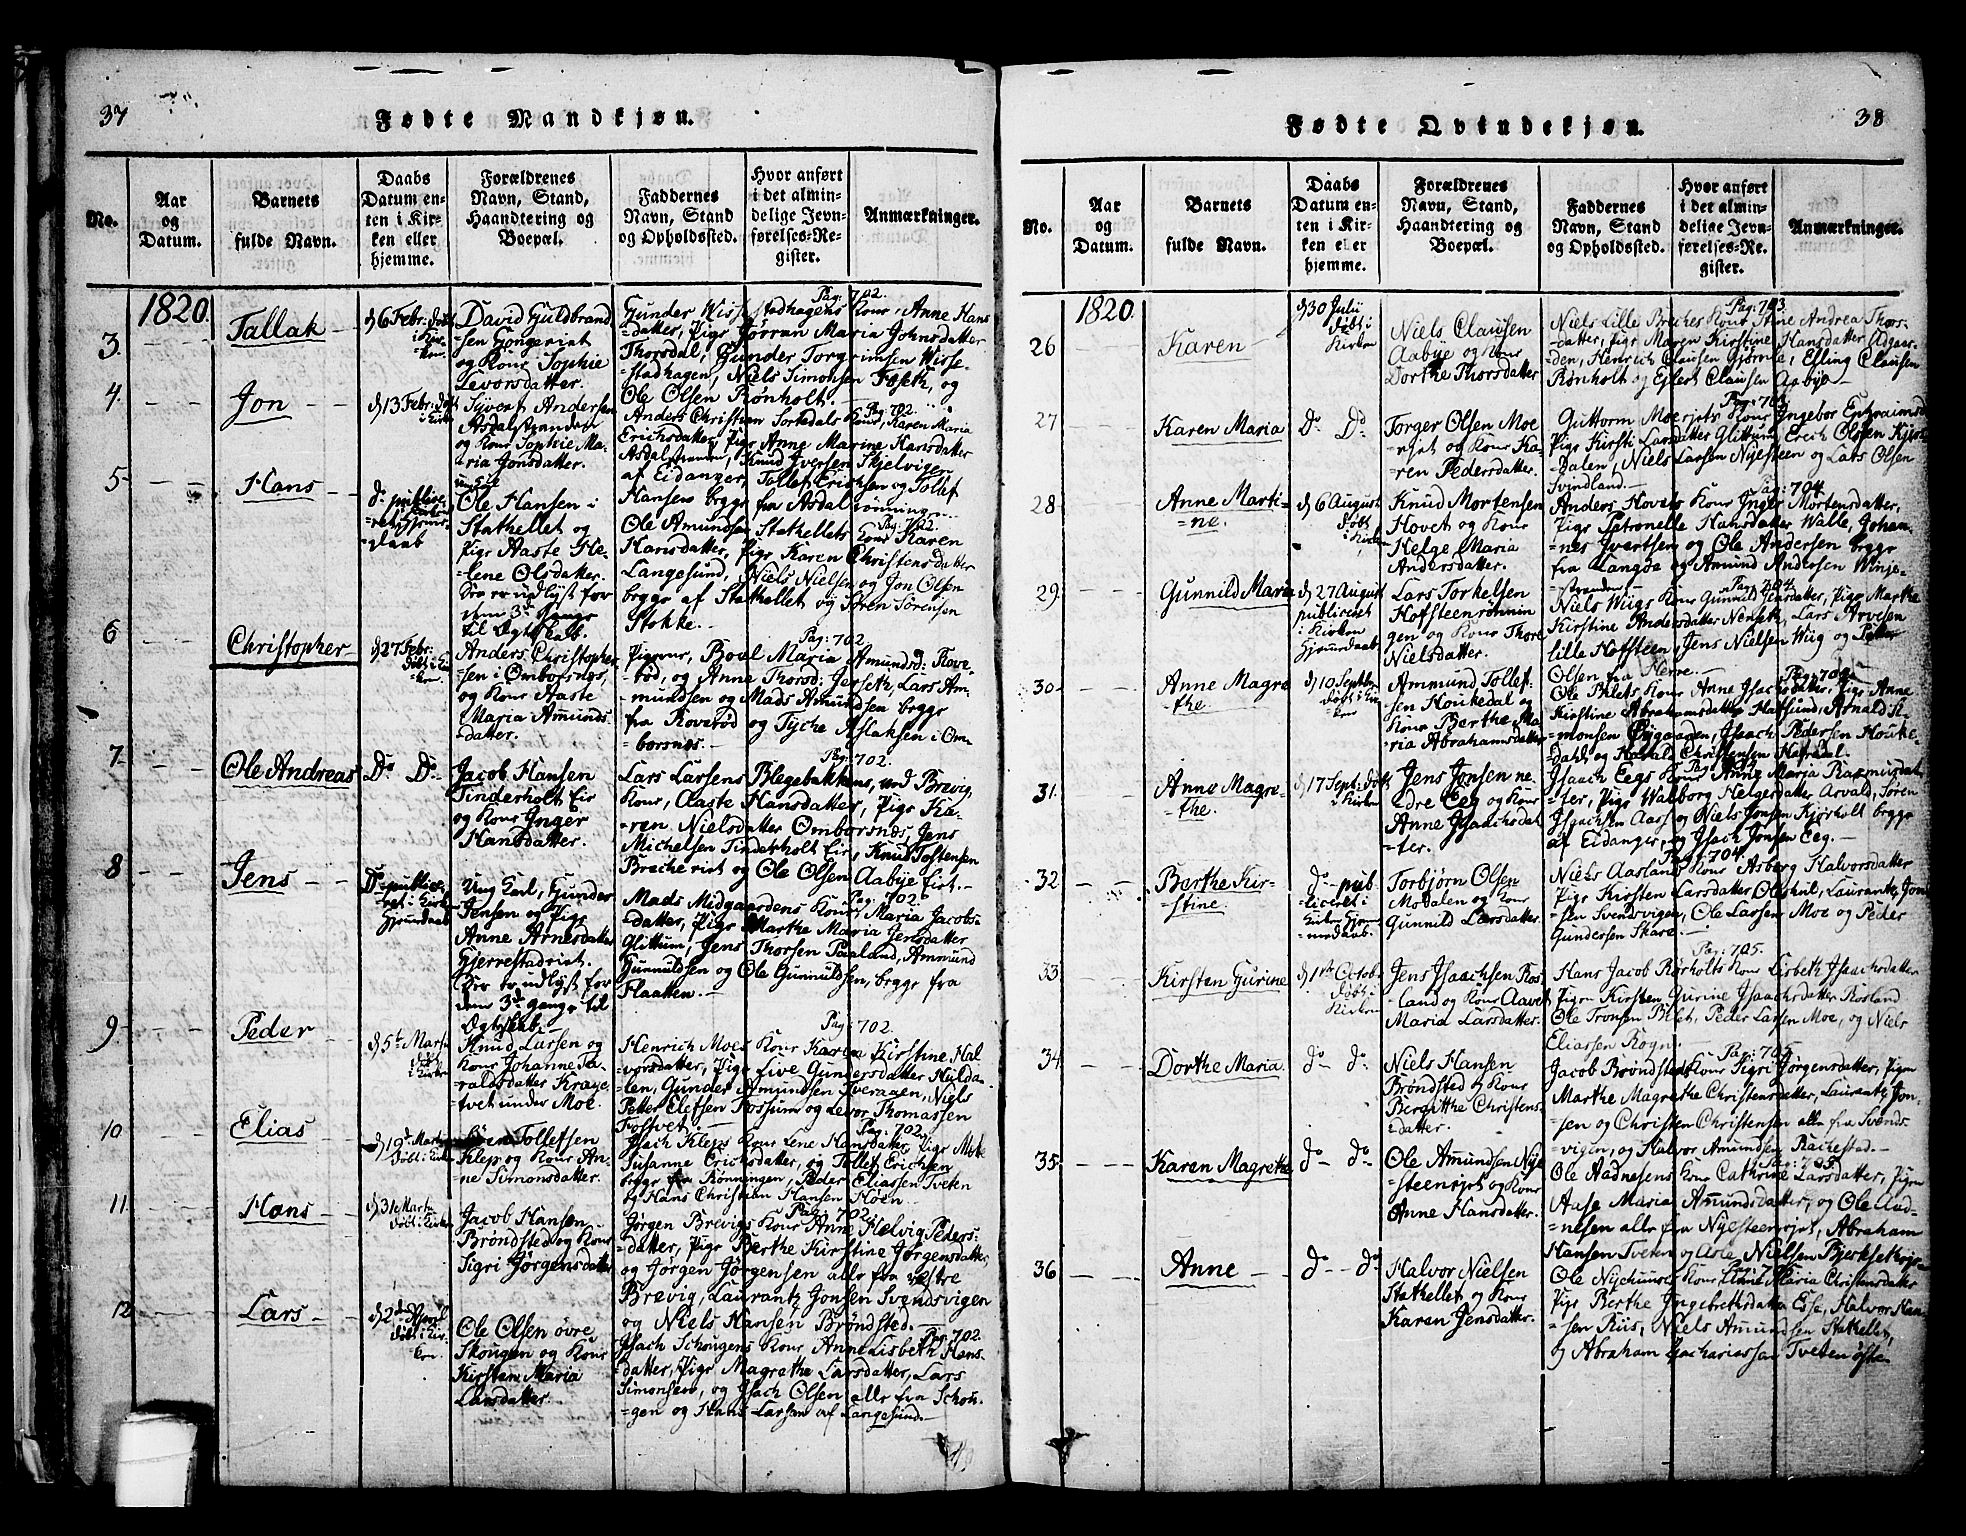 37
Fødte Mandkjøn.
No.
Aar
og
Datum.
Barnets
fulde Navn.
Daabs
Datum en-
ten i Kir-
ken eller
hjemme.
Forældrenes
Navn, Stand,
Haandtering og
Boepæl.
Faddernes
Navn, Stand
og Opholdssted.
Hvor anført
i det almin-
delige Jevn-
førelses-Re-
gister.
Anmærkninger.
1820.
3.
Tallak
d 6 Febr: døbt
i Kir-
ken.
David Guldbrand
=sen Gongeriet
og Kone Sophie
Levorsdatter.
Pag: 702.
Gunder Wissestadhagens Kone, Anne Hans
=datter, Pige Jørran Maria Johnsdatter
Thorsdal, Gunder Torgrimsen Wisse-
=stadhagen, Niels Simonsen Foseth, og
Ole Olsen Rønholt.
4
Jon
d 13 Febr: døbt
i Kirk
Syvert Andersen
Asdalstranden
og Kone Sophie Ma-
=ria Jonsdatter.
Pag: 702.
Anders Christian Sortedals Kone, Karen Maria
Erichsdatter, Pige Anne Marine Hansdatter
Asdalstranden, Knud Iversen Skjelvigen
af Eidanger, Tollef Erichsen og Tollef
Hansen begge fra Asdal
5
Hans
d° publice-
ret Hjemme-
=daab
Ole Hansen i
Stathellet og
Pige Aaste He-
=lene Olsdatter.
Bro er udlyst for
dem 3de Gange
til Ægteskab.
Pag: 702.
Ole Amundsen Stathellets Kone Karen
Hansdatter, Pige Karen Christensdatter
Langesund, Niels Nielsen og Jon Olsen
begge af Stathellet og Søren Sørensen
Stokke.
6
Christopher
d 27 Febr:
døbt i Kir
=ken.
Anders Christopher
=sen i Omborsnes,
og Kone Aaste
Maria Amunds
=datter.
Pag: 702.
Pigerne, Boel Maria Amundsd: Rove-
=bod, og Anne Thorsd: Jerseth, Lars Am-
=mundsen og Mads Amundsen begge
fra Rovebød og Tyche Aslaksen i Om-
=borsnes.
7
Ole Andreas
D° D°
Jacob Hansen
Tinderholt eir
og Kone Inger
Hansdatter.
Pag: 702.
Lars Larsens Blegebakken, ved Brevig,
Kone, Aaste Hansdatter, Pige Ka-
=ren Nielsdatter Omborsnes, Jens
Michelsen Tinderholt eir, Knud Tostensen
Breche riet og Ole Olsen Aabye firt.
8
Jens
D° publice-
ret i Kirk
Hjemdaab
Ung Karl, Gunder
Jensen og Pige
Anne Arnesdatter
Gjerrestadriet.
Bro er udlyst for
dem 3de gange til
Ægteskab.
Pag: 702.
Mads Midgaardens Kone Maria Jacobs-
=datter, Pige Marthe Maria Jensdatter
Glittum, Jens Thorsen Paaland, Ammund
Gunnuldsen og Ole Gunnuldsen, begge fra
Flaatten.
9.
Peder
d 5te Marts
døbt
i Kirken
Knud Larsen og
Kone Johanne Ta-
=raldsdatter Krage-
tvet under Moe.
Pag: 702.
Henrich Moes Kone Karen Kirstine Hal
=vorsdatter, Pige Live Gundersdatter Huldal
len, Gunder Amundsen Tveraaen, Niels
Petter Elefsen Rossum og Levor Thomassen
Fostvet.
10
Elias
d 19de Marts
døbt i Kirk
Tollefsen
Klep og Kone An-
=ne Simonsdatter.
Pag: 702.
Isach Kleps Kone Lene Hansdatter, Pige Mette
Susanne Erichsdatter, og Tollef Erichsen
begge fra Rønningen, Peder Eliassen Tveten
og Hans Christian Hansen Høen
11.
Hans
d 31 Marts
døbt i Kirken
Jacob Hansen
Brøndsted og Kone
Sigri Jørgensdatter
Pag: 702
Jørgen Brevigs Kone Anne Helvig Peders-
=datter, Pige Berthe Kirstine Jørgensdatter,
og Jørgen Jørgensen alle fra vestre
Brevig, Laurantz Jonsen Svendsvigen
og Niels Hansen Brøndsted.
12
Lars
d 2den April
døbt i Kir-
ken.
Ole Olsen øvre
Skougen og Kone
Kirsten Maria
Larsdatter.
Pag: 702.
Isach Schougens Kone Anne Lisbeth Hans-
datter, Pige Magrethe Larsdatter, Lars
Simonsen, og Isach Olsen alle fra Schou-
=gen og Hans Larsen af Langesund.
38
Fødte Qvindekjøn.
No.
Aar
og
Datum.
Barnets
fulde Navn.
Daabs
Datum en-
ten i Kir-
ken eller
hjemme.
Forældrenes
Navn, Stand,
Haandtering og
Boepæl.
Faddernes
Navn, Stand
og Opholdssted.
Hvor anført
i det almin-
delige Jevn-
førelses-Re-
gister.
Anmærkninger.
1820.
26
Karen
d 30 Julii
døbt i
Kirken
Niels Clausen
Aabye og Kone
Dorthe Thorsdatter
Pag: 703.
Niels Lille Breches Kone Stine Andrea Thors-
=datter, Pige Maren Kirstine Hansdatter Adgaar-
den, Henrich Clausen Gjørnes, Efling Clausen
Rønholt og Eflert Clausen Aabye
27
Karen Maria
D° D°
Torger Olsen Moe
=rjet og Kone Ka-
ren Pedersdatter.
Pag: 703
Guttorm Moerjets Kone Ingebor Ephraimsd
Pige Kirsti Larsdatter Glittum, Erich Olsen Kjøs
dalen, Niels Larsen Nylsteen og Lars Olsen
Svindland.
28
Anne Marti-
=ne.
d 6 August
døbt
i Kirken
Knud Mortensen
Hovet og Kone
Helge Maria
Andersdatter.
Pag: 704.
Anders Hovets Kone Inger Mortensdatter,
Pige Petronelle Hansdatter Walle, Johan-
=nes Ivertsen og Ole Andersen begge
fra Langøe og Amund Andersen Winje-
=stranden.
29
Gunnild Maria
d 27 August
publiceret
i Kirken
Hjemdaab
Lars Torkelsen
Hofsteenrønnin
gen og Kone Thore
Nielsdatter.
Pag: 704.
Niels Wiigs Kone Gunnild Jensdatter, Pige Marthe
Kirstine Andersdatter Nenseth, Lars Arvesen
lille Hofsteen, Jens Nielsen Wiig og Petter
Olsen fra Herre.
30
Anne Magre
=the
d 10 Septbr
døbt i Kir
ken
Ammund Tollef-
sen Houkedal og
Kone Berthe Ma-
ria Abrahamsdatter
Pag: 704.
Ole Blets Kone Anne Isachsdatter, Pige Anne
Kirstine Abrahamsdatter Hafsund, Arnald Si-
=monsen Øygaaden, Isach Pedersen Houke-
dahl og Halvald Christensen Hafredal.
31.
Anne Magre-
=the.
d 17 Sept: døbt
i Kirken
Jens Jonsen ne-
dre Eeg og Kone
Anne Isaachsdat
=ter.
Pag: 704.
Isaach Eegs Kone Anne Maria Rasmusdat
=ter, Pige Walborg Helgesdatter Asvald, Søren
Isaachsen Aass og Niels Jonsen Kjørholt begge
af Eidanger, og Isach Jonsen Eeg.
32
Berthe Kir-
=stine.
d° pub-
liceret i
Kirken Hjem
=medaab.
Torbjørn Olsen
Modalen og Kone
Gunnild Larsdatter.
Pag: 704.
Niels Aaslands Kone Asborg Halvorsdatter
Pige Kirsten Larsdatter Oleshul, Laurantz Jon
=sen Svendsvigen, Ole Larsen Moe og Peder
Gundersen Skare.
33
Kirsten Gurine
d 1ste Octob.
døbt i
Kirken
Jens Isaachsen Ros
land og Kone Aavet
Maria Larsdatter.
Pag: 705.
Hans Jacob Rørholts Kone Lisbeth Isaachsdatter
Pigen Kirsten Gurine Isaachsdatter Rosland
Ole Tronsen Blet, Peder Larsen Moe, og Niels
Eliassen Rogn.
34
Dorthe Maria
d° d°
Niels Hansen
Brøndsted og Kone
Bergitthe Christens
=datter.
Pag: 705
Jacob Brøndsteds Kone Sigri Jørgensdatter, Pigen
Marthe Magrethe Christensdatter, Laurantz Jon-
=sen og Christen Christensen alle fra Svends
vigen, og Halvor Amundsen Rachestad.
35
Karen Magrethe
d° d°
Ole Amundsen Nyl
=steenrjet og Kone
Anne Hansdatter.
Pag: 705.
Ole Aadnesens Kone Cathrine Larsdatter, Pigen
Aase Maria Amundsdatter, og Ole Aad-
=nesen alle fra Nylsteenrjet, Abraham
Hansen Tveten og Asle Nielsen Bjerkset
36
Anne
d° d°
Halvor Nielsen
Stathellet og Kone
Karen Jensdatter.
Pag: 705
Ole Nyehuuses Kone Anne Maria Christensdatter
Pige Berthe Ingebrethsdatter Esse, Halvor Han
=sen Riis, Niels Amundsen Stathellet,
og Abraham Zachariassen Tveten øste